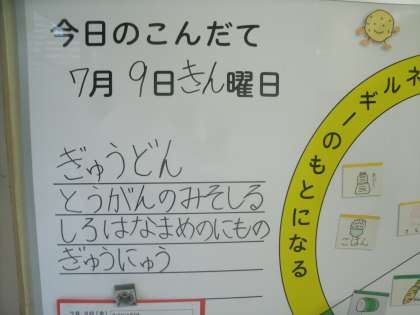 今日のこんだて
7月9日きん曜日
ぎゅうどん
とうがんのみそしる
しろはなまめのにもの
ぎゅうにゅう
ネルギーのもとになる
ごはん